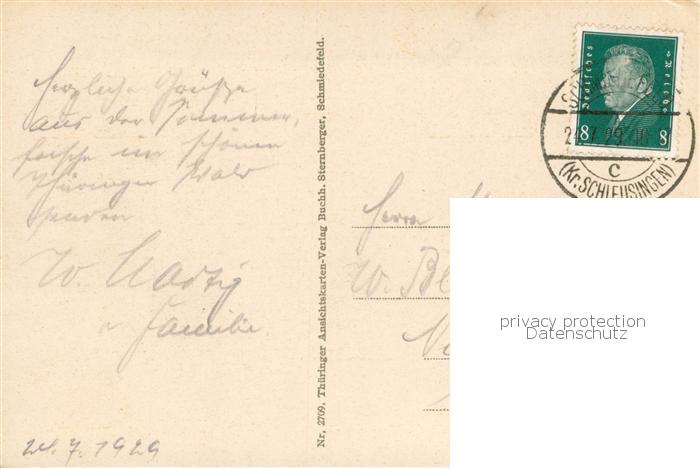 Herzliche Grüße
aus der Sommer,
frische im schönen
Thüringer Wald
senden
W. Hartig
u Familie.
24.7.1929
Nr. 2709. Thüringer Ansichtskarten-Verlag Buchh. Sternberger, Schmiedefeld.
Deutsches Reich
8 8
7.29
c
(Kr. SCHLEUSINGEN)
Herrn
W. Bl
privacy protection
Datenschutz